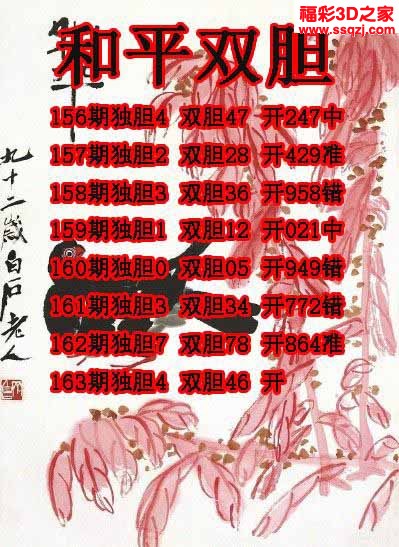 福彩3D之家
www.ssqzj.com
和平双胆
156期独胆4 双胆47 开247中
157期独胆2 双胆28 开429准
158期独胆3 双胆36 开958错
159期独胆1 双胆12 开021中
160期独胆0 双胆05 开949错
161期独胆3 双胆34 开772错
162期独胆7 双胆78 开864准
163期独胆4 双胆46 开
九十二岁白石老人